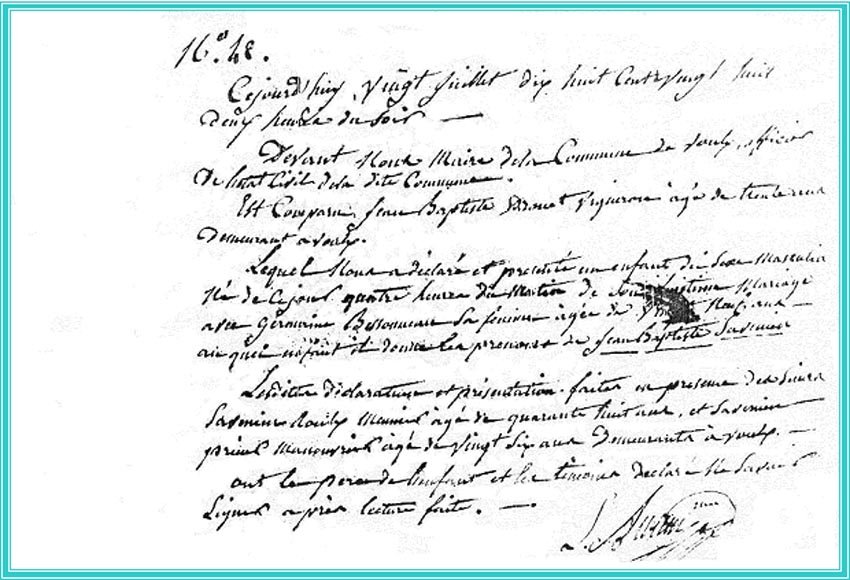 N°. 48.
Cejourd'huy vingt juillet dix huit Cent vingt huit
deux heures du soir —
Devant Nous Maire dela Commune de voulx, officier
De letat Civil dela dite Commune.
Est Comparu Jean Baptiste Vigneron âgé de trente
Demeurant a voulx.
Lequel Nous a déclaré et presenté un enfant du Sexe Masculin
Né de Cejour quatre heures du Matin de Son Mariage
avec Germaine Sa femme âgée de
au quel enfant il donne les prenoms de Jean Baptiste Savinien
Lesdites déclaration et présentation faites en presence des Sieurs
Savinien âgé de quarante huit ans, et Savinien
Manouvrier âgé de vingt Six ans Demeurants à voulx. —
ont le pere de lenfant et les témoins declaré Ne Savoir
Signer après lecture faite. —